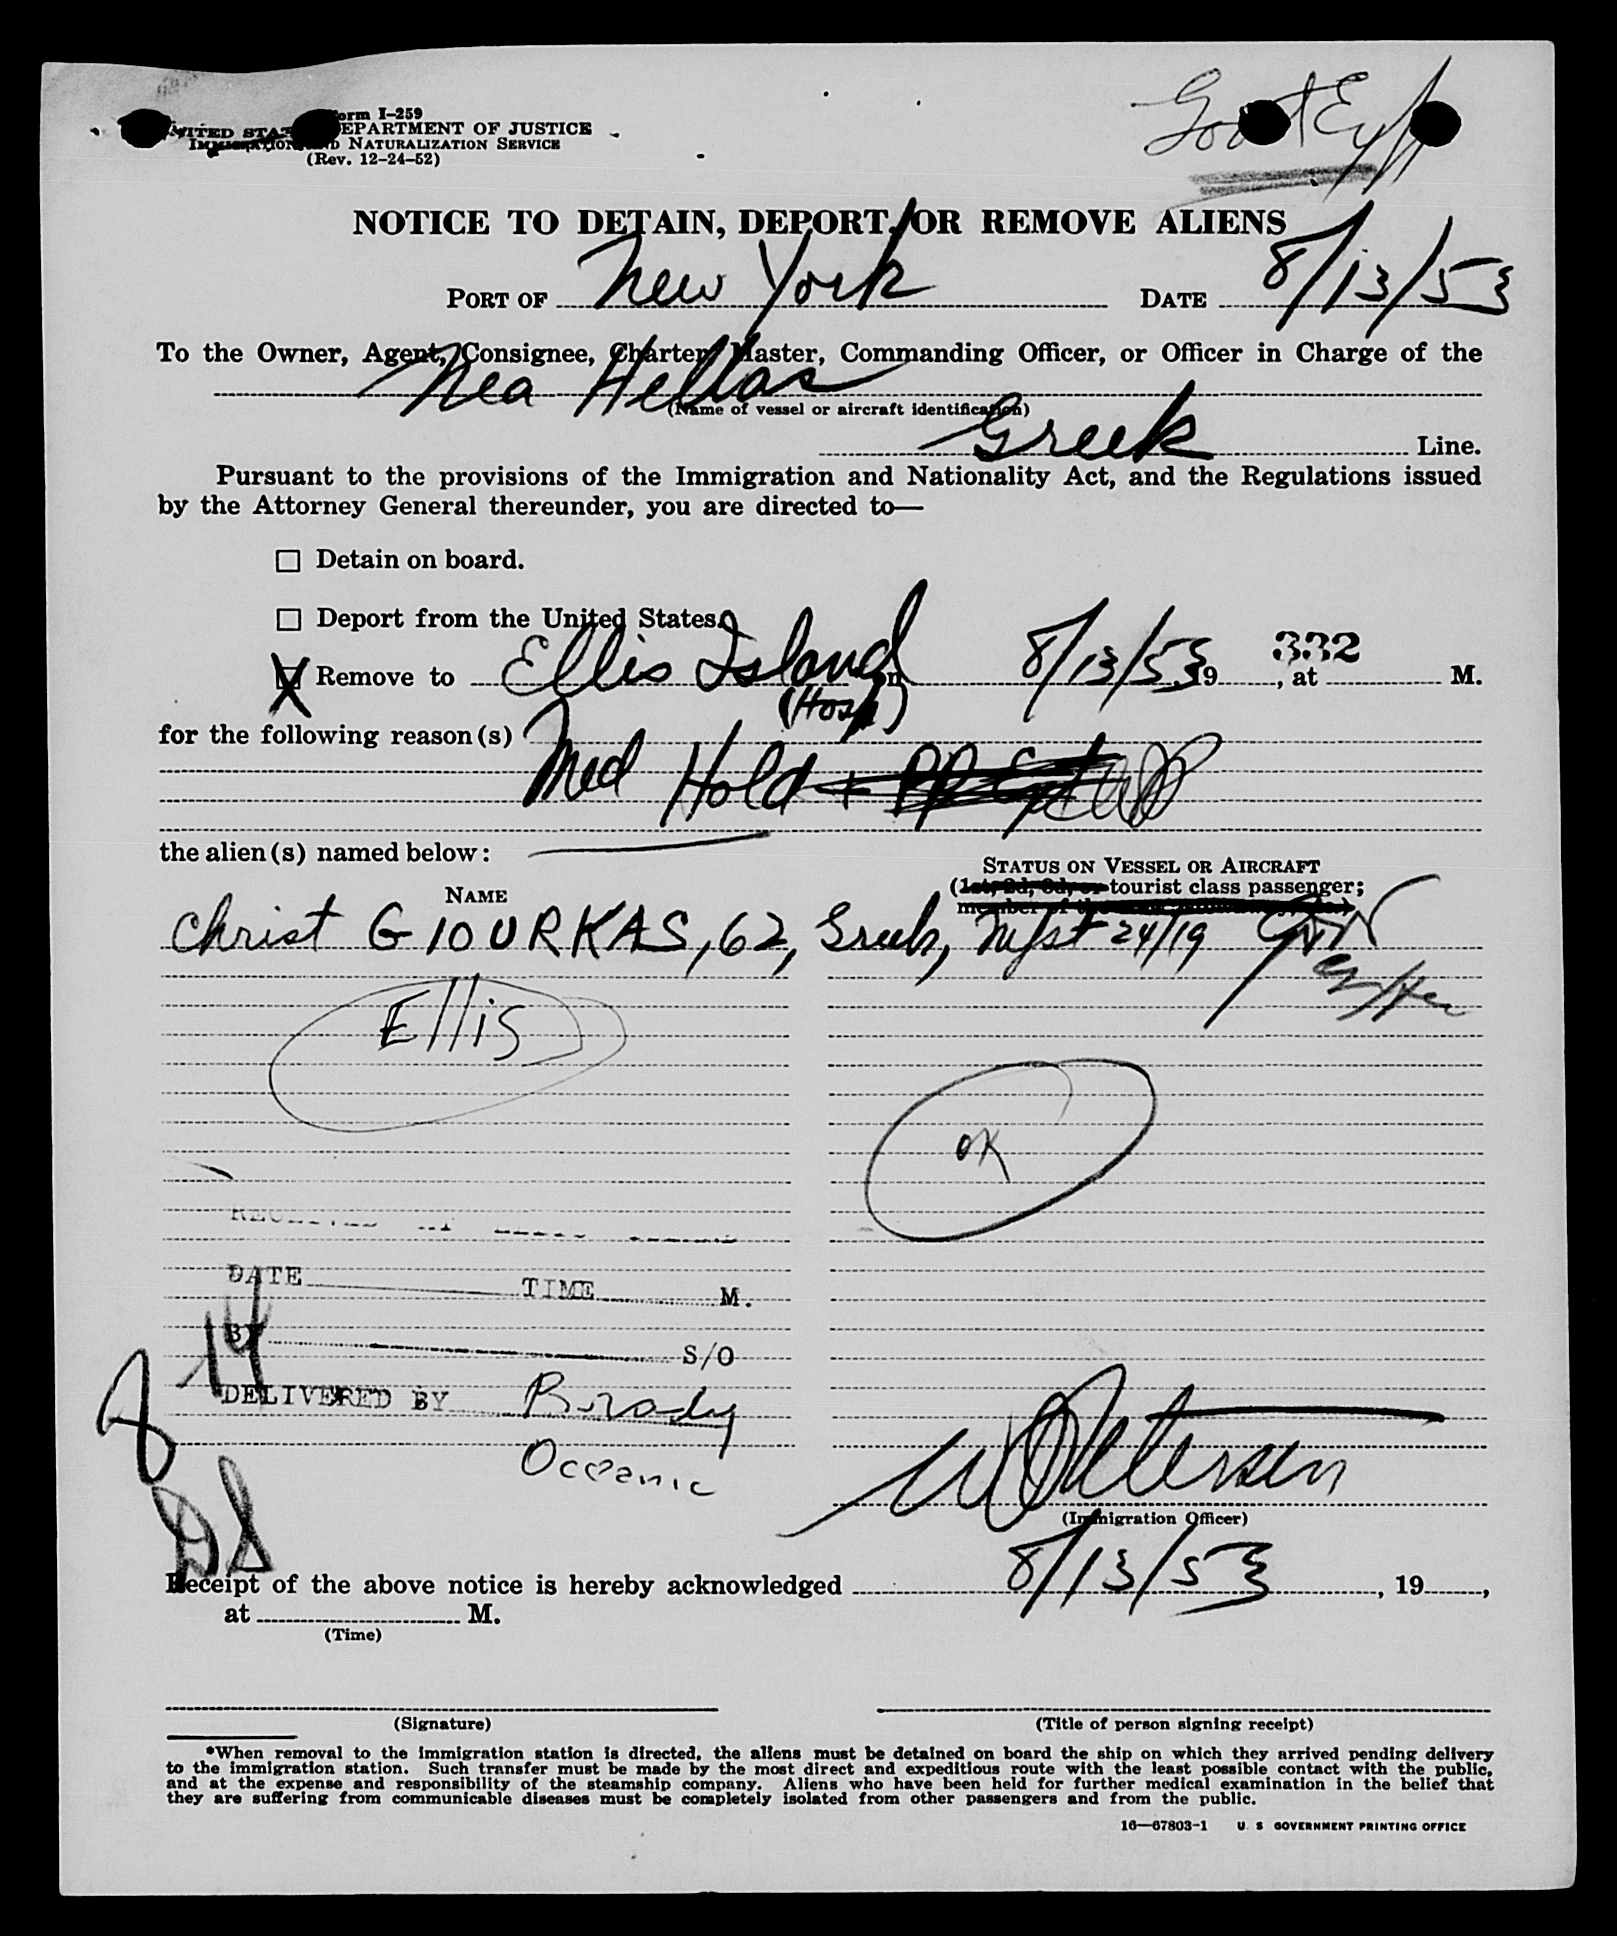 Form I-259
UNITED STATES DEPARTMENT OF JUSTICE
IMMIGRATION AND NATURALIZATION SERVICE
(Rev. 12-24-52)
NOTICE TO DETAIN, DEPORT, OR REMOVE ALIENS
PORT OF New York DATE 8/13/53
To the Owner, Agent, Consignee, Charter, Master, Commanding Officer, or Officer in Charge of the
Nea Hellas
(Name of vessel or aircraft identification)
Greek Line.
Pursuant to the provisions of the Immigration and Nationality Act, and the Regulations issued
by the Attorney General thereunder, you are directed to—
Detain on board.
Deport from the United States.
X Remove to Ellis Island on 8/13/53 19, at 332 M.
(Hosp)
for the following reason(s)
Med Hold
the alien(s) named below:
STATUS ON VESSEL OR AIRCRAFT
(1st, 2d, 3d, or tourist class passenger;
NAME
member of
Christ GIOURKAS, 62, Greek, 24/19
Ellis
OK
RECEIVED AT ELLIS ISLAND
DATE TIME M.
14
BY S/O
DELIVERED BY Brady
Oceanic
W Petersen
(Immigration Officer)
Receipt of the above notice is hereby acknowledged 8/13/53, 19,
at M.
(Time)
(Signature) (Title of person signing receipt)
*When removal to the immigration station is directed, the aliens must be detained on board the ship on which they arrived pending delivery
to the immigration station. Such transfer must be made by the most direct and expeditious route with the least possible contact with the public,
and at the expense and responsibility of the steamship company. Aliens who have been held for further medical examination in the belief that
they are suffering from communicable diseases must be completely isolated from other passengers and from the public.
16—67803-1 U. S. GOVERNMENT PRINTING OFFICE